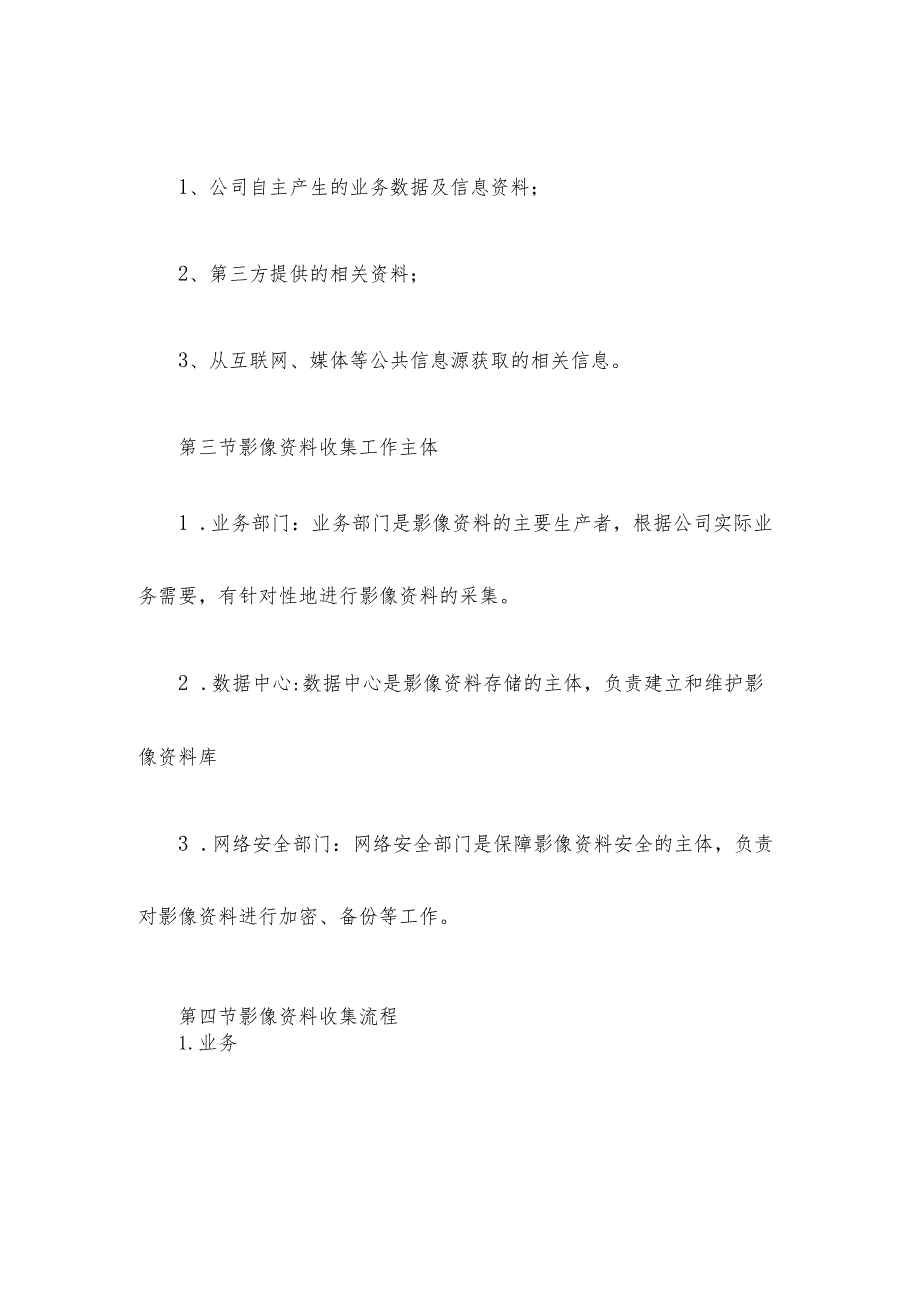 1、公司自主产生的业务数据及信息资料；
2、第三方提供的相关资料；
3、从互联网、媒体等公共信息源获取的相关信息。
第三节影像资料收集工作主体
1 .业务部门：业务部门是影像资料的主要生产者，根据公司实际业
务需要，有针对性地进行影像资料的采集。
2 .数据中心:数据中心是影像资料存储的主体，负责建立和维护影
像资料库
3 .网络安全部门：网络安全部门是保障影像资料安全的主体，负责
对影像资料进行加密、备份等工作。
第四节影像资料收集流程
1.业务